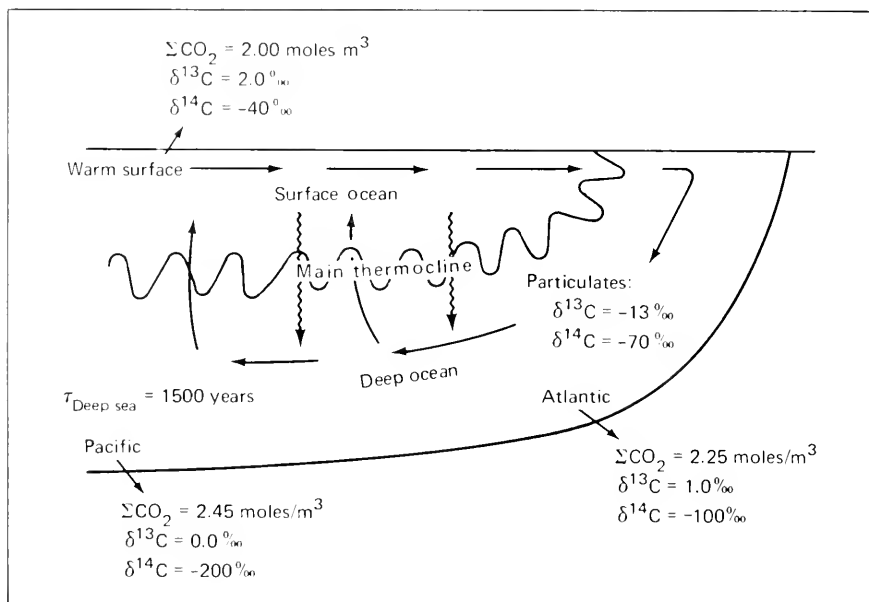 ΣCO₂ = 2.00 moles m³
δ¹³C = 2.0‰
δ¹⁴C = -40‰
Warm surface
Surface ocean
Main thermocline
Particulates:
δ¹³C = -13‰
δ¹⁴C = -70‰
Deep ocean
τ Deep sea = 1500 years
Atlantic
Pacific
ΣCO₂ = 2.25 moles/m³
δ¹³C = 1.0‰
δ¹⁴C = -100‰
ΣCO₂ = 2.45 moles/m³
δ¹³C = 0.0‰
δ¹⁴C = -200‰